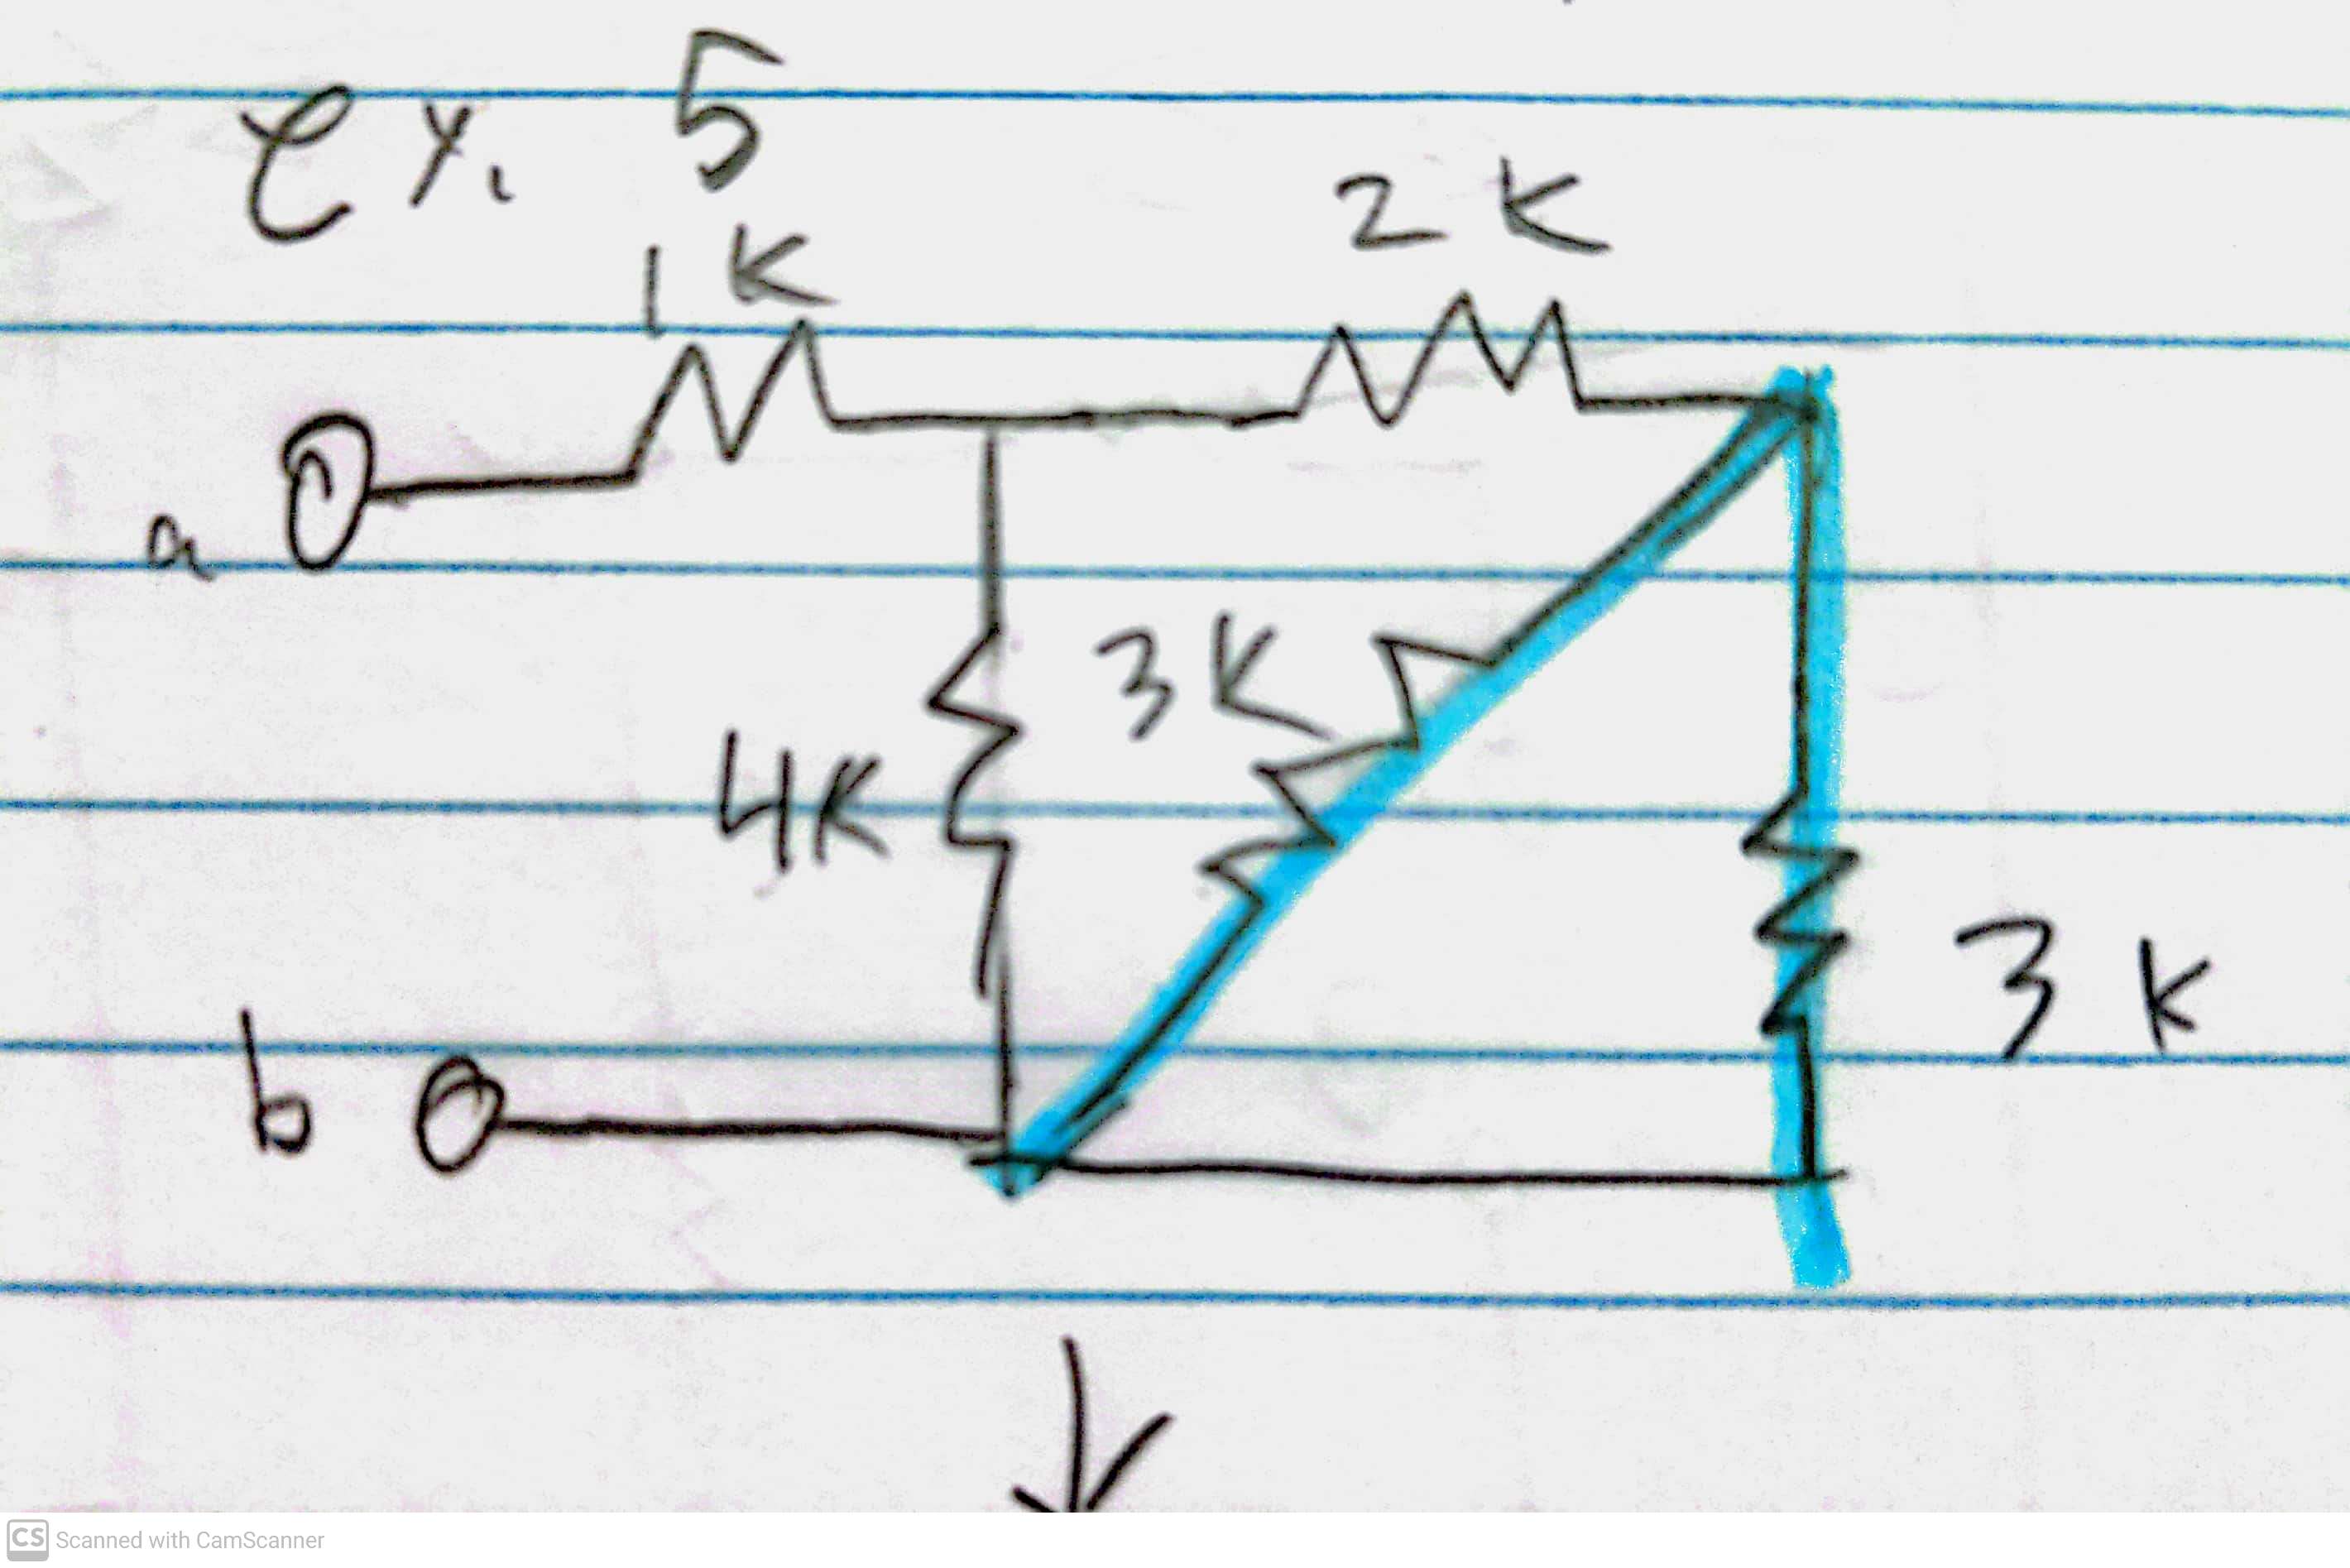 ex. 5
1K
2K
a
3K
4K
3K
b
CS Scanned with CamScanner